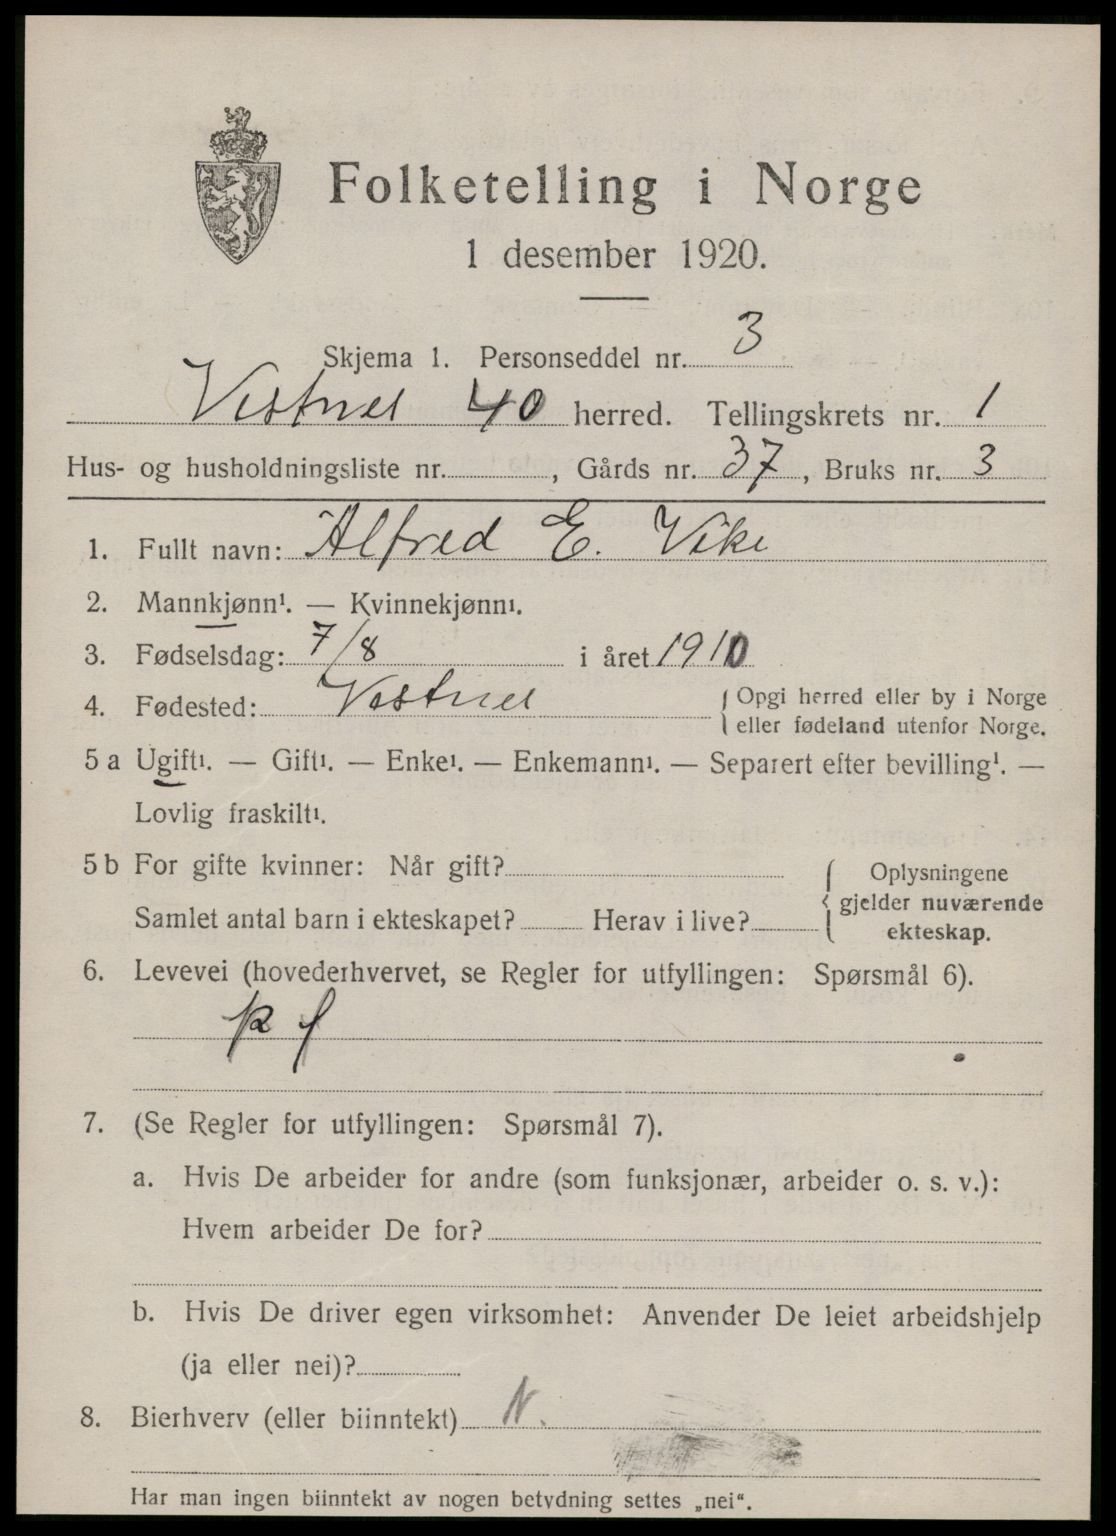 Folketelling i Norge
1 desember 1920.
Skjema 1. Personseddel nr. 3
Vestnes 40 herred. Tellingskrets nr. 1
Hus- og husholdningsliste nr. , Gårds nr. 37, Bruks nr. 3
1. Fullt navn: Alfred E. Vike
2. Mannkjønn¹. — Kvinnekjønn¹.
3. Fødselsdag: 7/8 i året 1910
4. Fødested: Vestnes { Opgi herred eller by i Norge
eller fødeland utenfor Norge.
5 a Ugift¹. — Gift¹. — Enke¹. — Enkemann¹. — Separert efter bevilling¹. —
Lovlig fraskilt¹.
5 b For gifte kvinner: Når gift?
Samlet antal barn i ekteskapet? Herav i live?
{ Oplysningene
gjelder nuværende
ekteskap.
6. Levevei (hovederhvervet, se Regler for utfyllingen: Spørsmål 6).
7. (Se Regler for utfyllingen: Spørsmål 7).
a. Hvis De arbeider for andre (som funksjonær, arbeider o. s. v.):
Hvem arbeider De for?
b. Hvis De driver egen virksomhet: Anvender De leiet arbeidshjelp
(ja eller nei)?
8. Bierhverv (eller biinntekt) N.
Har man ingen biinntekt av nogen betydning settes „nei“.